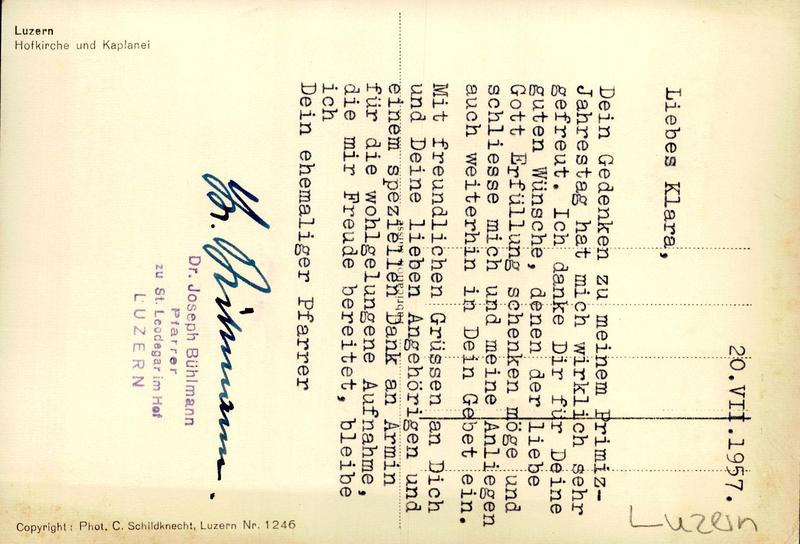 Luzern
Hofkirche und Kaplanei
20.VII.1957.
Liebes Klara,
Dein Gedenken zu meinem Primiz-
Jahrestag hat mich wirklich sehr
gefreut. Ich danke Dir für Deine
guten Wünsche, denen der liebe
Gott Erfüllung schenken möge und
schliesse mich und meine Anliegen
auch weiterhin in Dein Gebet ein.
Mit freundlichen Grüssen an Dich
und Deine lieben Angehörigen und
einem speziellen Dank an Armin
für die wohlgelungene Aufnahme,
die mir Freude bereitet, bleibe
ich
Dein ehemaliger Pfarrer
Bühlmann.
Dr. Joseph Bühlmann
Pfarrer
zu St. Leodegar im Hof
LUZERN
Luzern
Copyright: Phot. C. Schildknecht, Luzern Nr. 1246